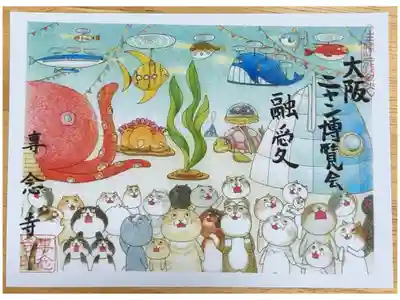 大阪
ニャン博覧会
融愛
専念寺